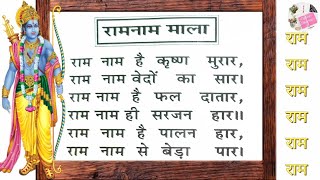 रामनाम माला
राम नाम है कृष्ण मुरार,
राम नाम वेदों का सार।
राम नाम है फल दातार,
राम नाम ही सरजन हार॥
राम नाम है पालन हार,
राम नाम से बेड़ा पार।
राम
राम
राम
राम
राम
राम